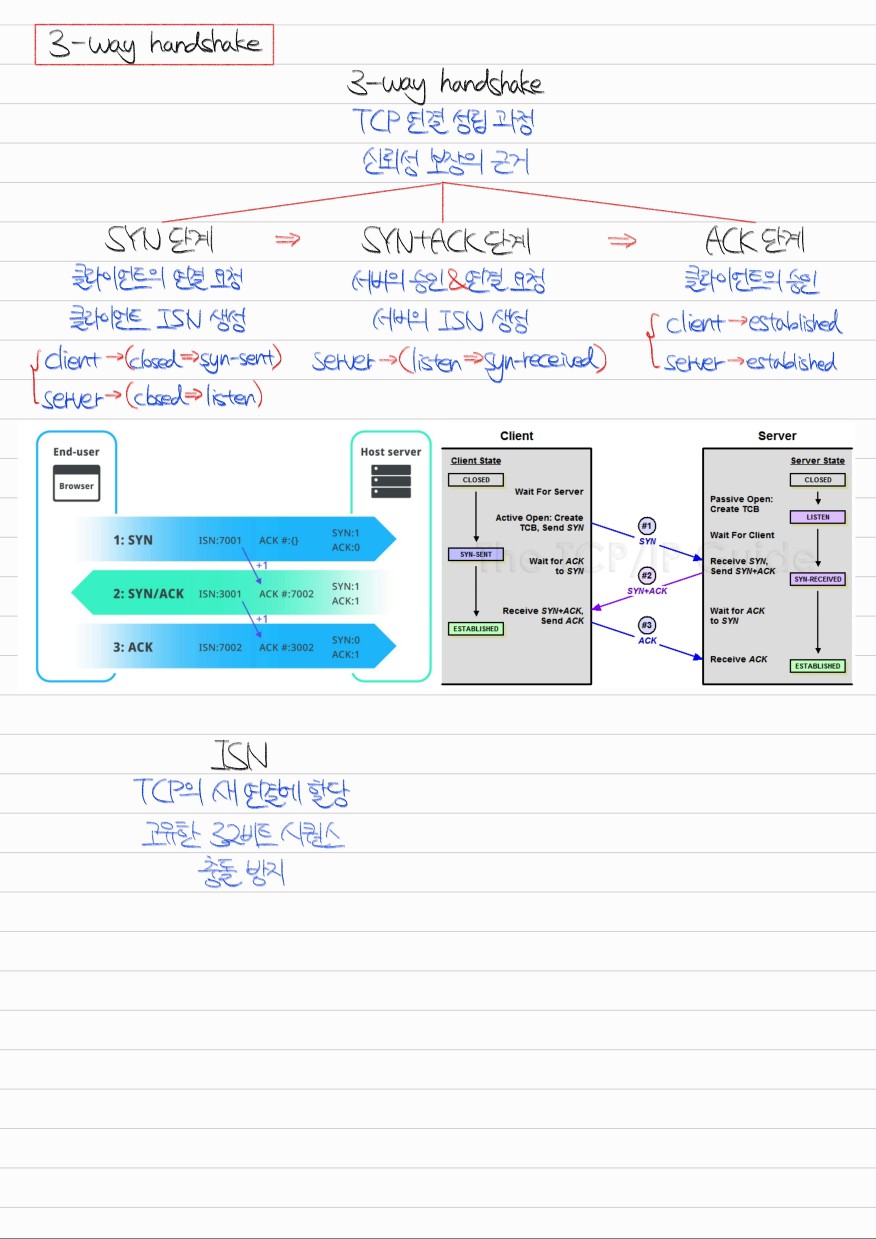 3-way handshake
3-way handshake
TCP 연결 성립 과정
신뢰성 보장의 근거
SYN 단계 ⇒ SYN+ACK 단계 ⇒ ACK 단계
클라이언트의 연결 요청
클라이언트 ISN 생성
client→(closed⇒syn-sent)
server→(closed⇒listen)
서버의 승인&연결 요청
서버의 ISN 생성
server→(listen⇒syn-received)
클라이언트의 승인
client→established
server→established
End-user
Browser
Host server
1: SYN ISN:7001 ACK #:{} SYN:1
ACK:0
+1
2: SYN/ACK ISN:3001 ACK #:7002 SYN:1
ACK:1
+1
3: ACK ISN:7002 ACK #:3002 SYN:0
ACK:1
Client
Client State
CLOSED
Wait For Server
Active Open: Create
TCB, Send SYN
SYN-SENT
Wait for ACK
to SYN
Receive SYN+ACK,
Send ACK
ESTABLISHED
#1
SYN
#2
SYN+ACK
#3
ACK
The TCP/IP Guide
Server
Server State
CLOSED
Passive Open:
Create TCB
LISTEN
Wait For Client
Receive SYN,
Send SYN+ACK
SYN-RECEIVED
Wait for ACK
to SYN
Receive ACK
ESTABLISHED
ISN
TCP의 새 연결에 할당
고유한 32비트 시퀀스
충돌 방지